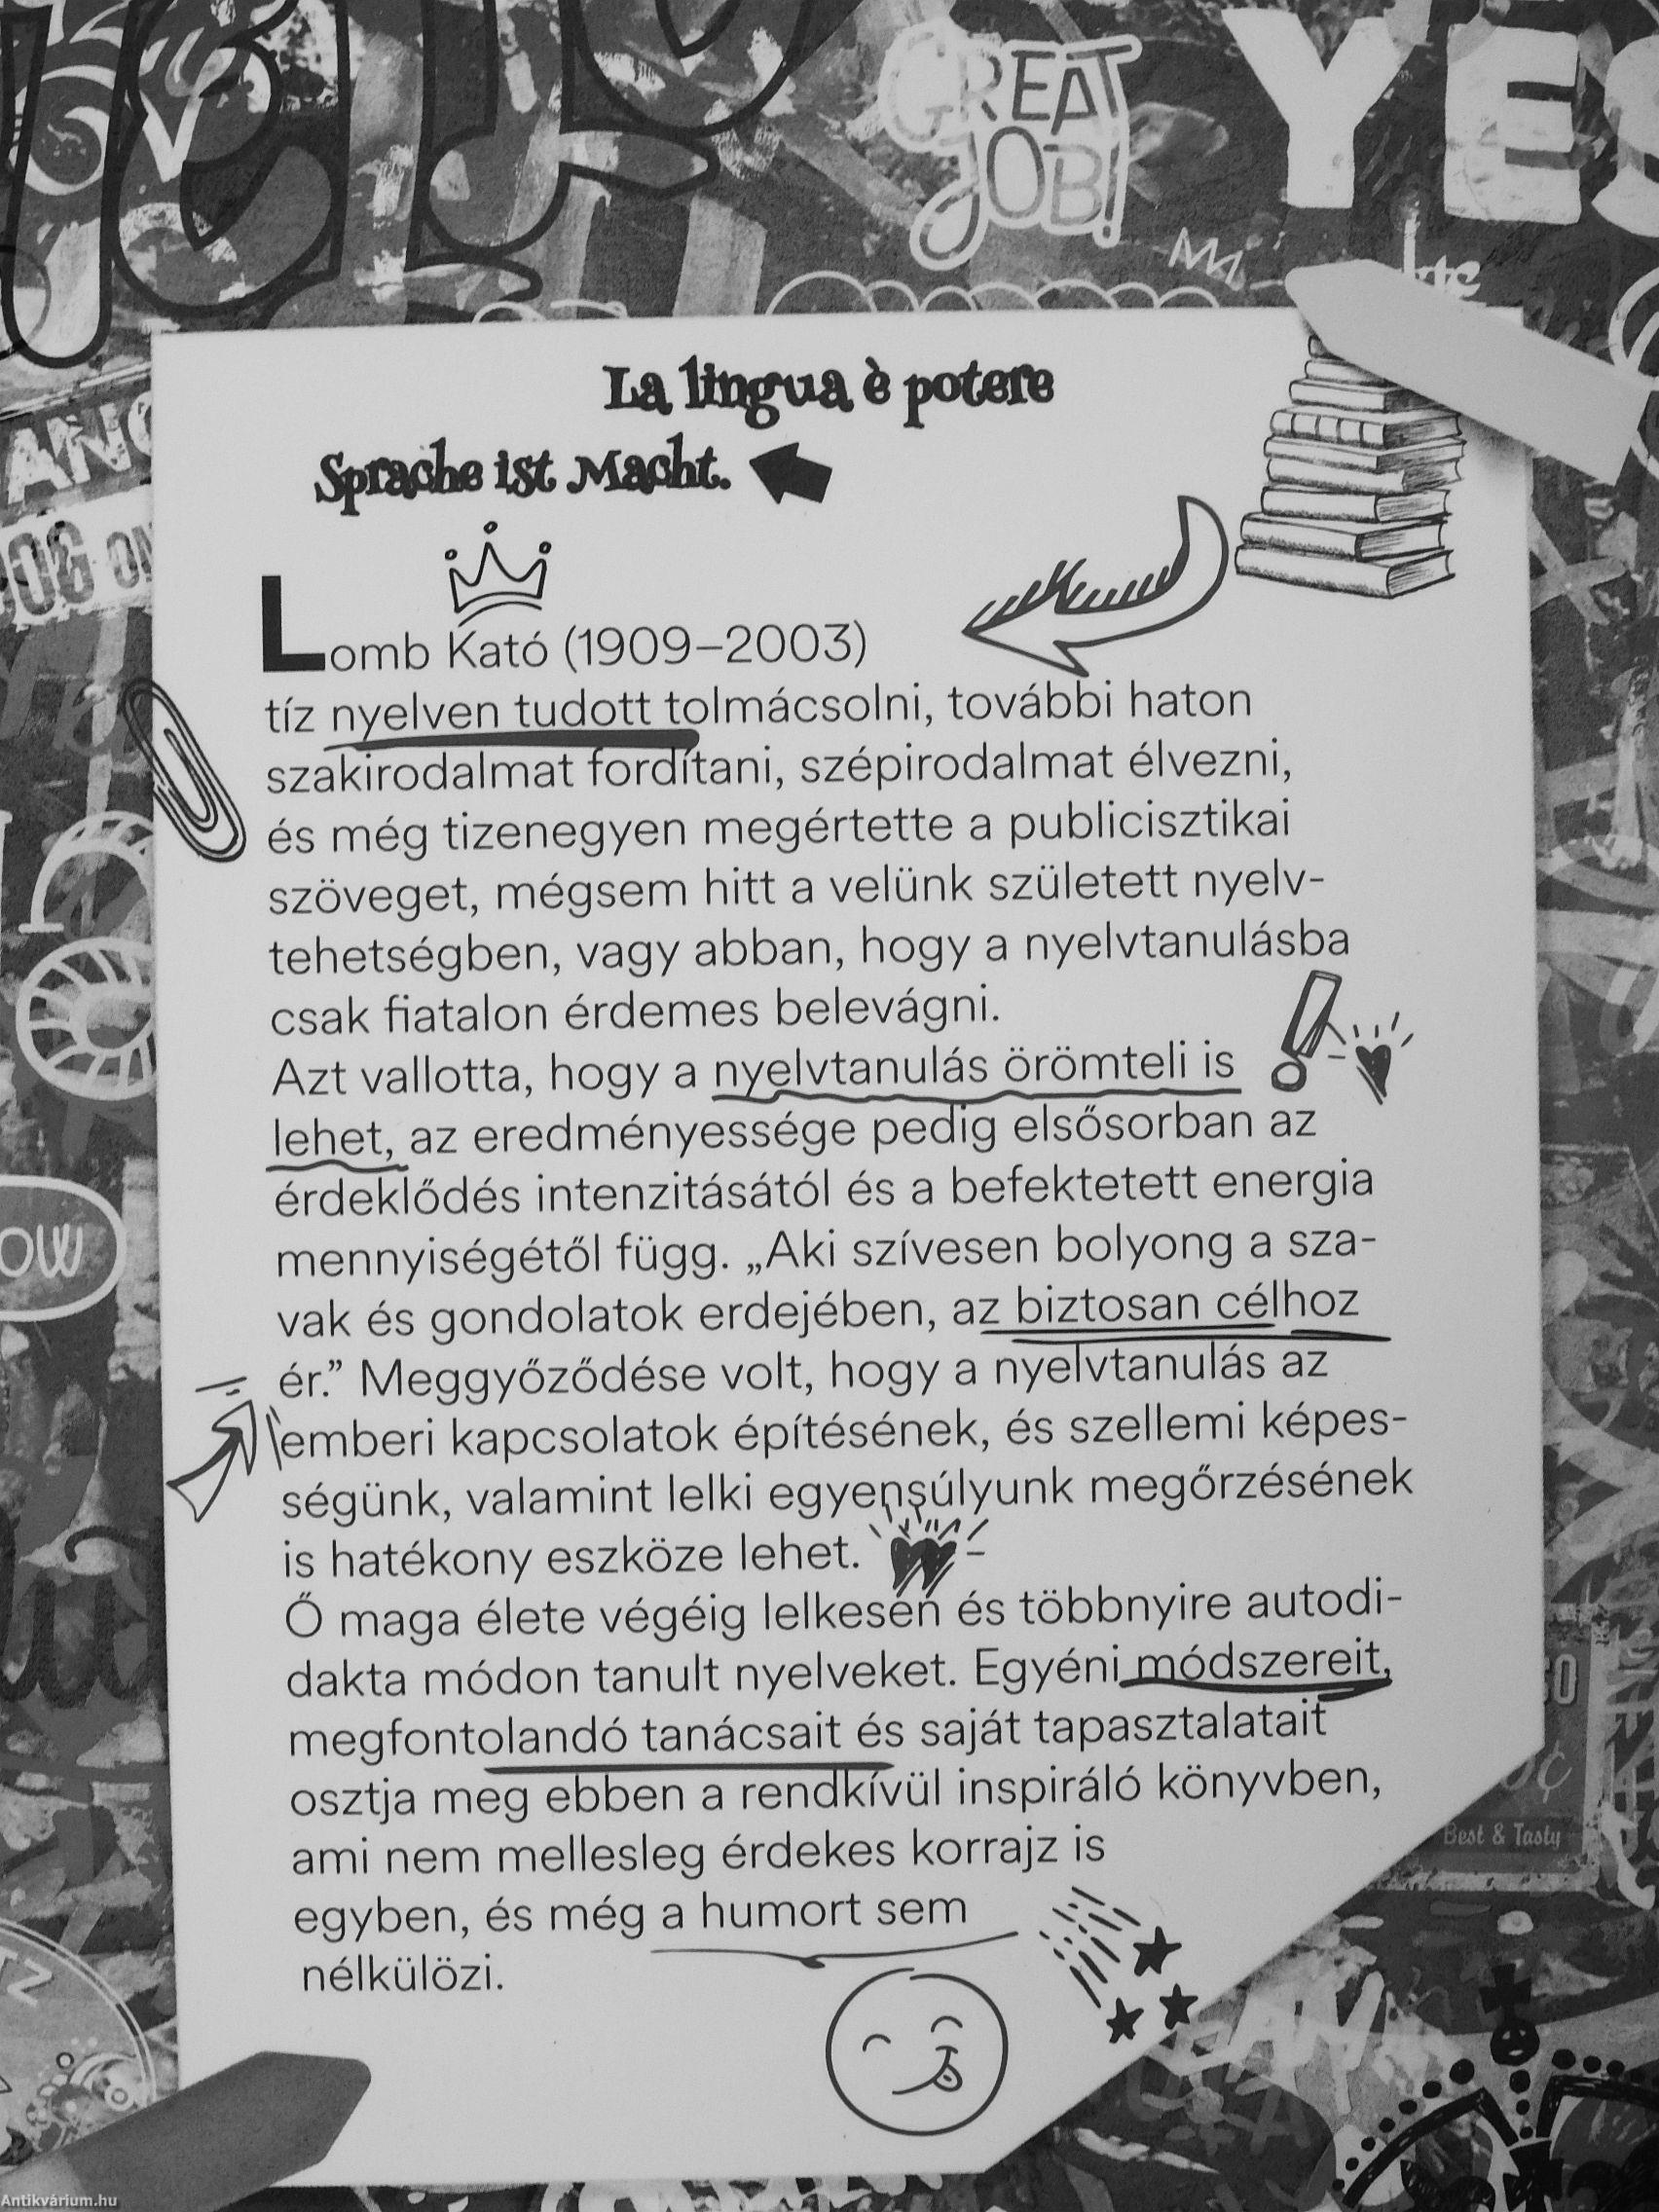 GREAT
JOB!
YES
La lingua è potere
Sprache ist Macht.
Lomb Kató (1909–2003)
tíz nyelven tudott tolmácsolni, további haton
szakirodalmat fordítani, szépirodalmat élvezni,
és még tizenegyen megértette a publicisztikai
szöveget, mégsem hitt a velünk született nyelv-
tehetségben, vagy abban, hogy a nyelvtanulásba
csak fiatalon érdemes belevágni.
Azt vallotta, hogy a nyelvtanulás örömteli is
lehet, az eredményessége pedig elsősorban az
érdeklődés intenzitásától és a befektetett energia
mennyiségétől függ. „Aki szívesen bolyong a sza-
vak és gondolatok erdejében, az biztosan célhoz
ér.” Meggyőződése volt, hogy a nyelvtanulás az
emberi kapcsolatok építésének, és szellemi képes-
ségünk, valamint lelki egyensúlyunk megőrzésének
is hatékony eszköze lehet.
Ő maga élete végéig lelkesen és többnyire autodi-
dakta módon tanult nyelveket. Egyéni módszereit,
megfontolandó tanácsait és saját tapasztalatait
osztja meg ebben a rendkívül inspiráló könyvben,
ami nem mellesleg érdekes korrajz is
egyben, és még a humort sem
nélkülözi.
Best & Tasty
Antikvárium.hu